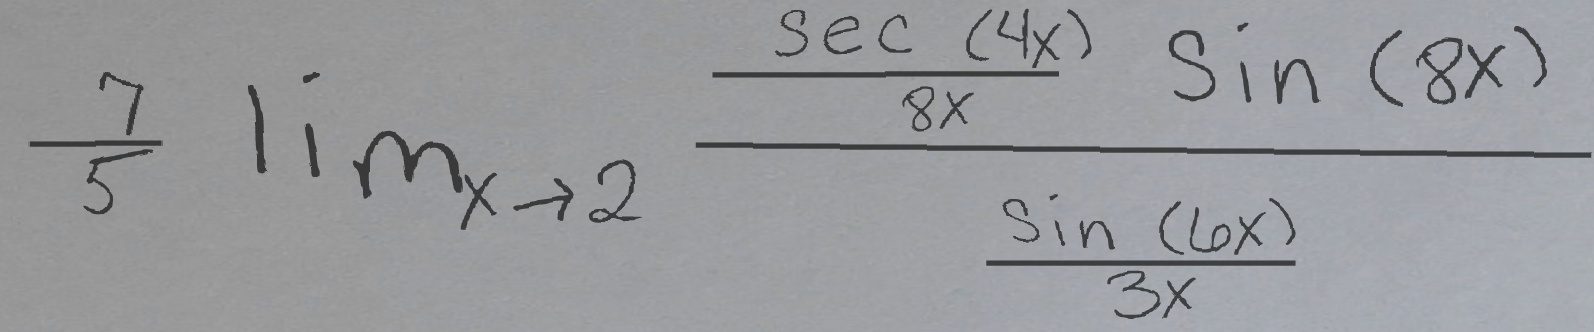 \frac{7}{5} \lim_{x \to 2} \frac{\frac{\sec(4x)}{8x} \sin(8x)}{\frac{\sin(6x)}{3x}}